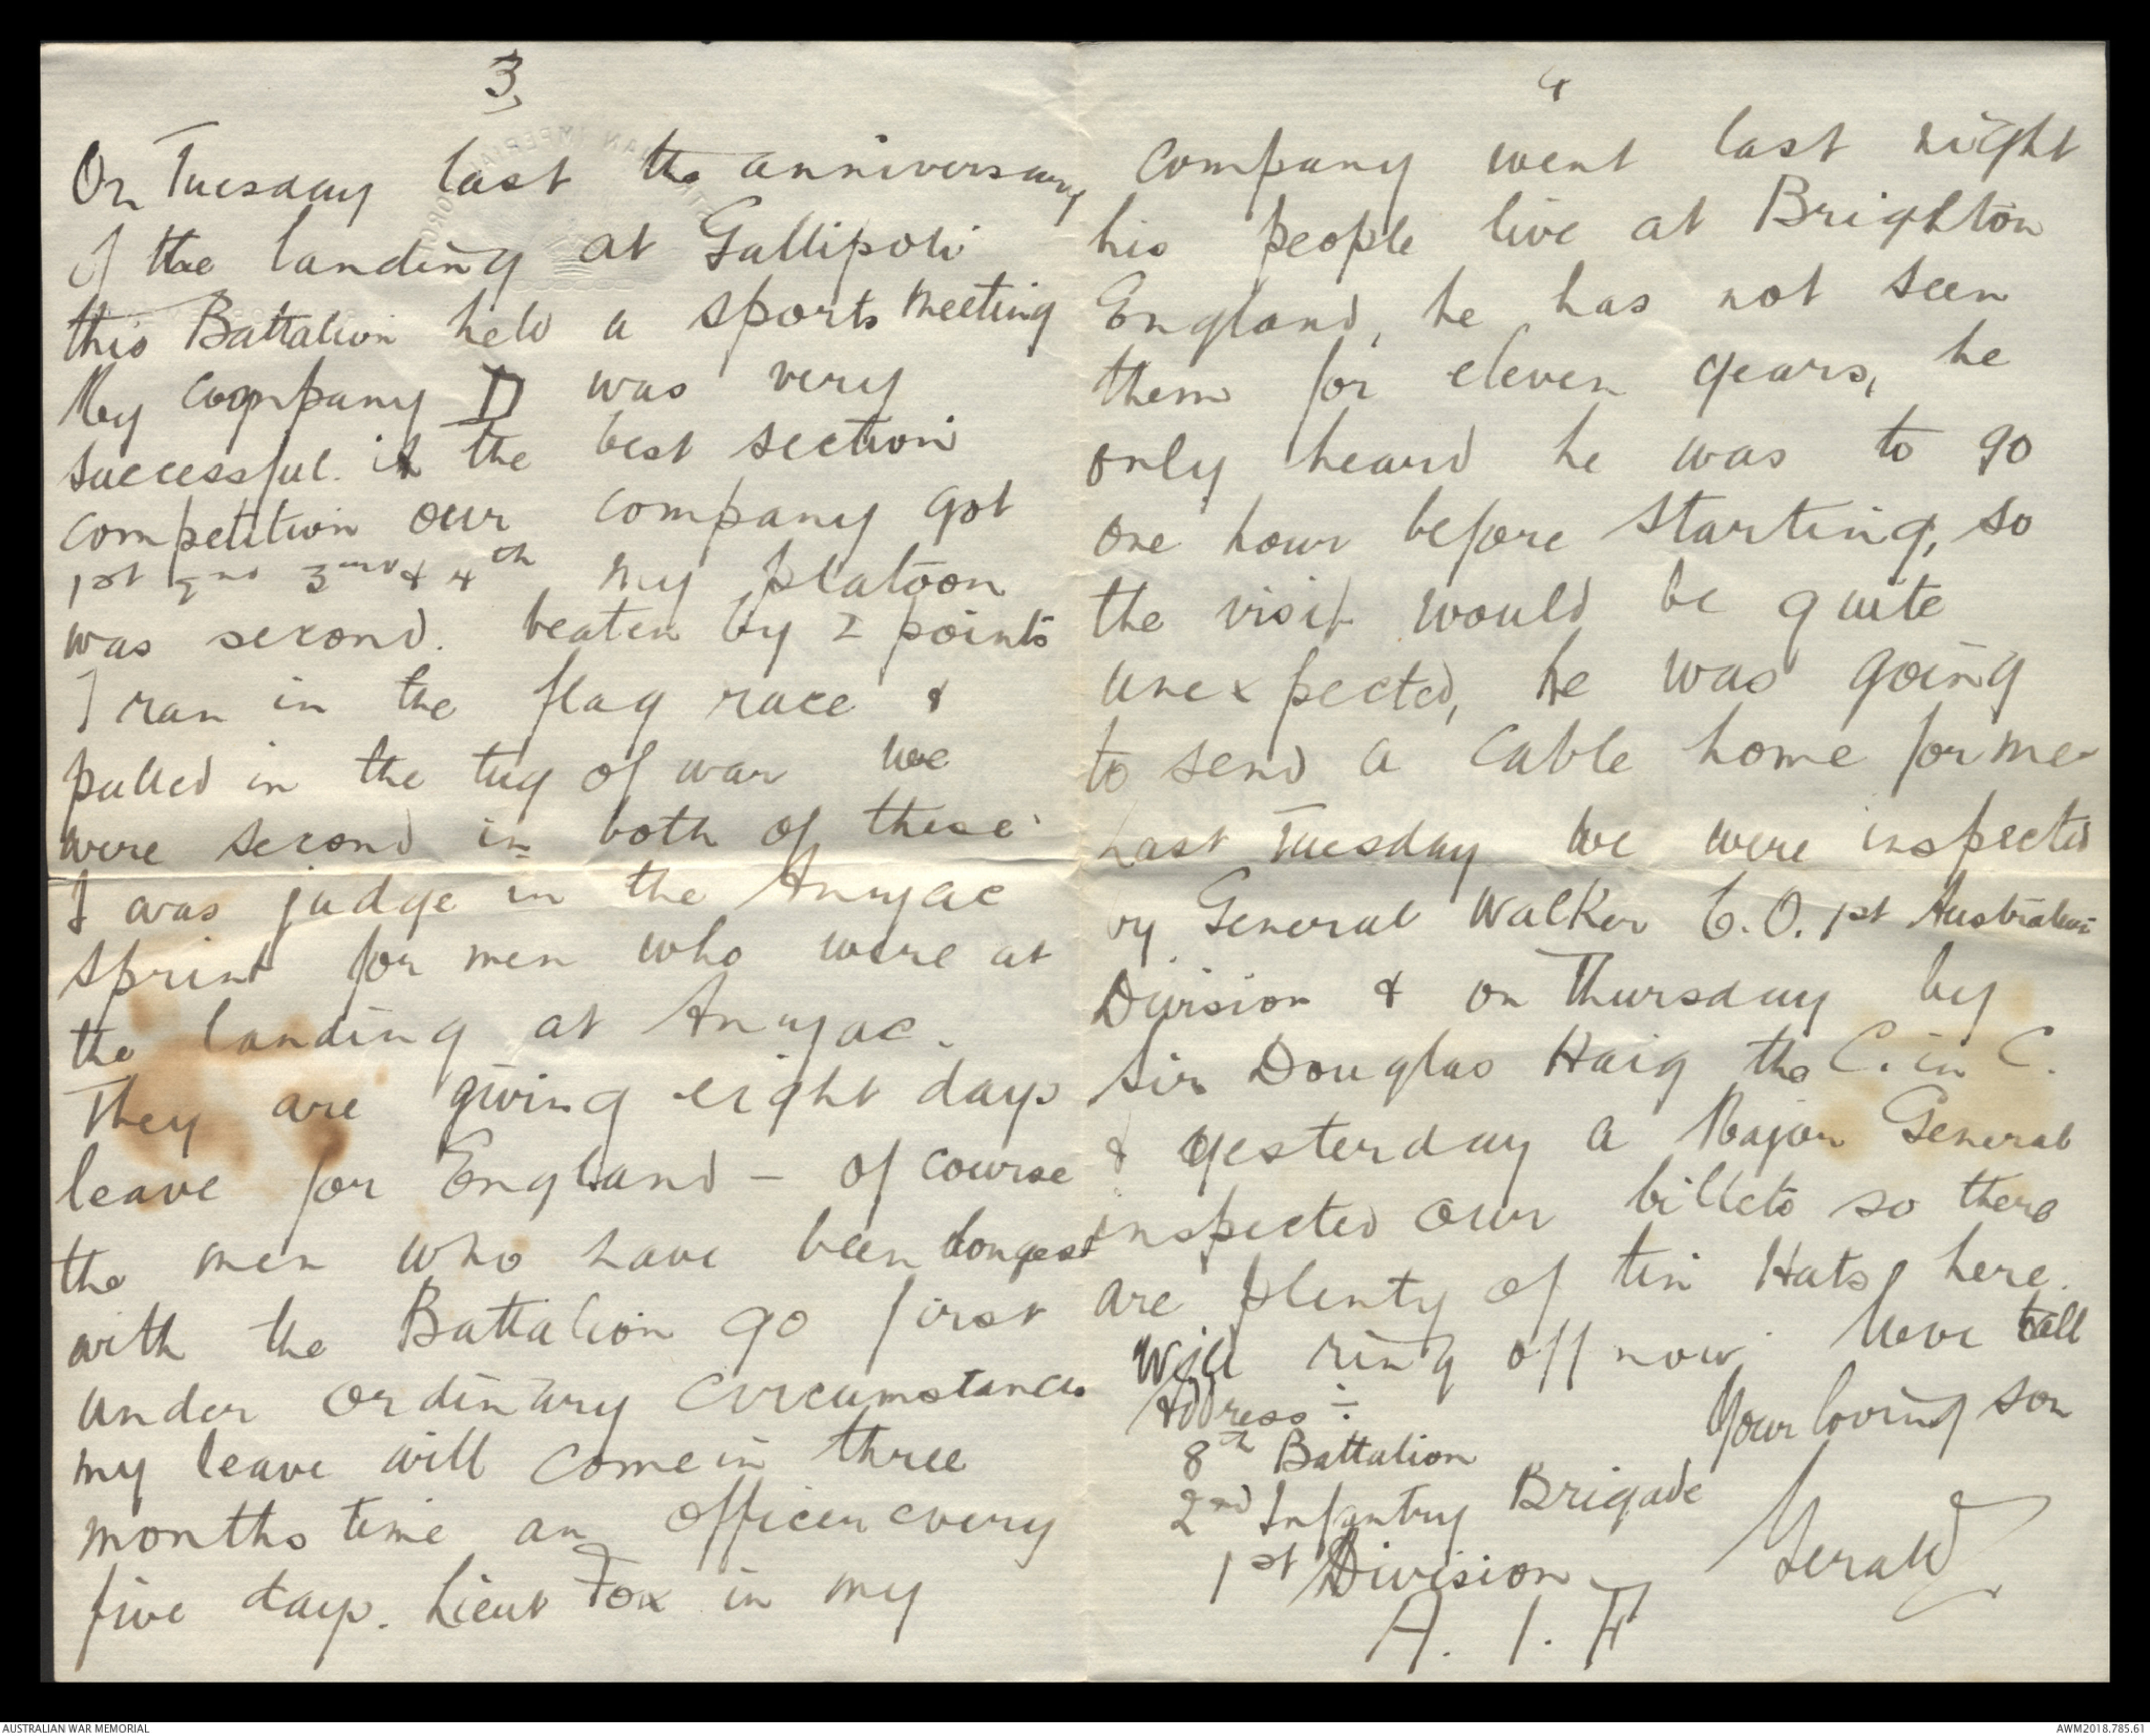 3,
On Tuesday last the anniversary
of the landing at Gallipoli
this Battalion held a sports meeting
My company D was very
successful. in the best section
competition our company got
1st 2nd 3rd & 4th my platoon
was second. beaten by 2 points
I ran in the flag race &
pulled in the tug of war we
were second in both of these
I was judge in the Anzac
sprint for men who were at
the landing at Anzac.
They are giving eight days
leave for England - of course
the men who have been longest
with the Battalion go first
under ordinary circumstances
my leave will come in three
months time an officer every
five days. Lieut Fox in my
4
company went last night
his people live at Brighton
England, he has not seen
them for eleven years, he
only heard he was to go
one hour before starting, so
the visit would be quite
unexpected, he was going
to send a cable home for me
Last Tuesday we were inspected
by General Walker C.O. 1st Australian
Division & on Thursday by
Sir Douglas Haig the C. in C.
& yesterday a Major General
inspected our billets so there
are plenty of tin Hats here.
Will ring off now love to all
Address :-
Your loving son
8th Battalion
2nd Infantry Brigade
Gerald
1st Division
A. I. F
AUSTRALIAN WAR MEMORIAL
AWM2018.785.61